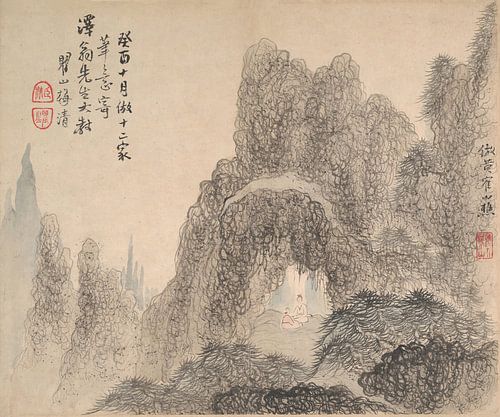 癸酉十月倣十二家
筆意寄
澤翁先生大教
瞿山梅清
倣黃寉山樵